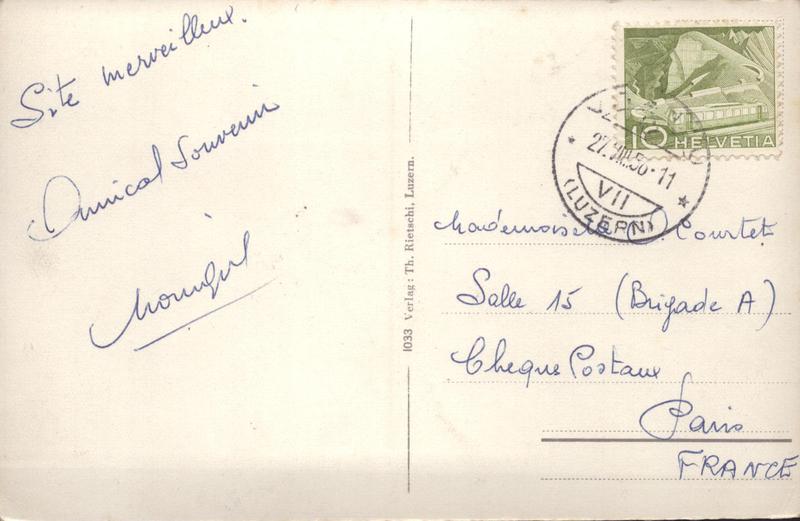 Site merveilleux.
Amical Souvenir
1033 Verlag: Th. Rietschi, Luzern.
10 HELVETIA
27.VIII.56-11
VII
(LUZERN)
Mademoiselle Courtet
Salle 15 (Brigade A)
Cheque Postaux
Paris
FRANCE